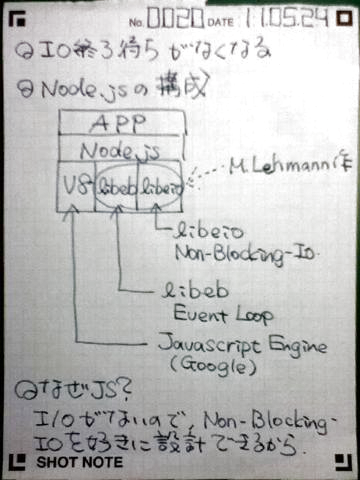 No. 0020 DATE 11.05.24
IO終了待ちがなくなる
Node.jsの構成
APP
Node.js
V8 libeb libeio
M.Lehmann作
libeio
Non-Blocking-IO.
libeb
Event Loop
Javascript Engine
(Google)
なぜJS?
I/Oがないので、Non-Blocking-
IOを好きに設計できるから.
SHOT NOTE